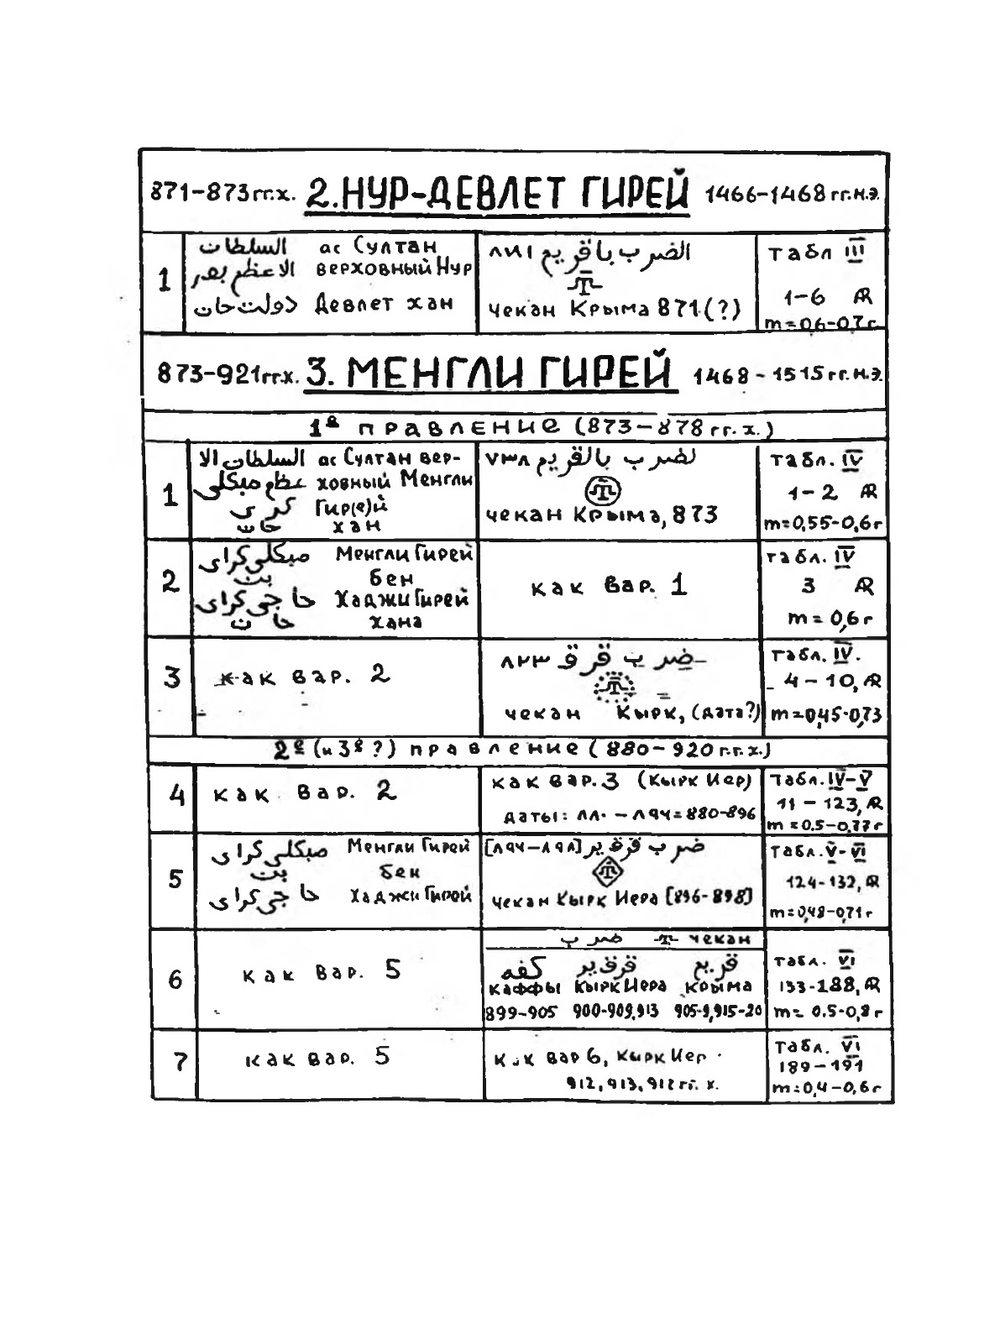 871-873гг.х. 2. НУР-ДЕВЛЕТ ГИРЕЙ 1466-1468гг.н.э.
1
السلطان ас Султан
الاعظم نور верховный Нур
دولت خان Девлет хан
الضرب باقريم ٨٧١
чекан Крыма 871(?)
табл III
1-6 AR
m=0,6-0,7г
873-921гг.х. 3. МЕНГЛИ ГИРЕЙ 1468-1515гг.н.э.
1е правление (873-878гг.х.)
1
السلطان الا ас Султан вер-
عظم منكلى ховный Менгли
كرى Гир(е)й
خان хан
لضرب بالقريم ٧٣٨
чекан Крыма, 873
табл. IV
1-2 AR
m=0,55-0,6г
2
منكلى كراى Менгли Гирей
بن бен
حاجى كراى Хаджи Гирей
خان хана
как вар. 1
табл. IV
3 AR
m=0,6г
3
как вар. 2
ضرب قرق ٨٢٣
чекан Кырк, (дата?)
табл. IV.
4-10, AR
m=0,45-0,73
2е (и 3е?) правление (880-920г.г.х.)
4
как вар. 2
как вар. 3 (Кырк Иер)
даты: ٨٨٠-٨٩٤=880-896
табл. IV-V
11-123, AR
m=0.5-0,77г
5
منكلى كراى Менгли Гирей
بن бен
حاجى كراى Хаджи Гирей
ضرب قرقير [٨٩٤-٨٩٨]
чекан Кырк Иера [896-898]
табл. V-VI
124-132, AR
m=0,48-0,71г
6
как вар. 5
ضرب чекан
كفه قرقير قريم
Каффы Кырк Иера Крыма
899-905 900-909,913 905-9,915-20
табл. VI
133-188, AR
m=0.5-0,8г
7
как вар. 5
как вар 6, Кырк Иер
912, 913, 912гг. х.
табл. VI
189-191
m=0,4-0,6г